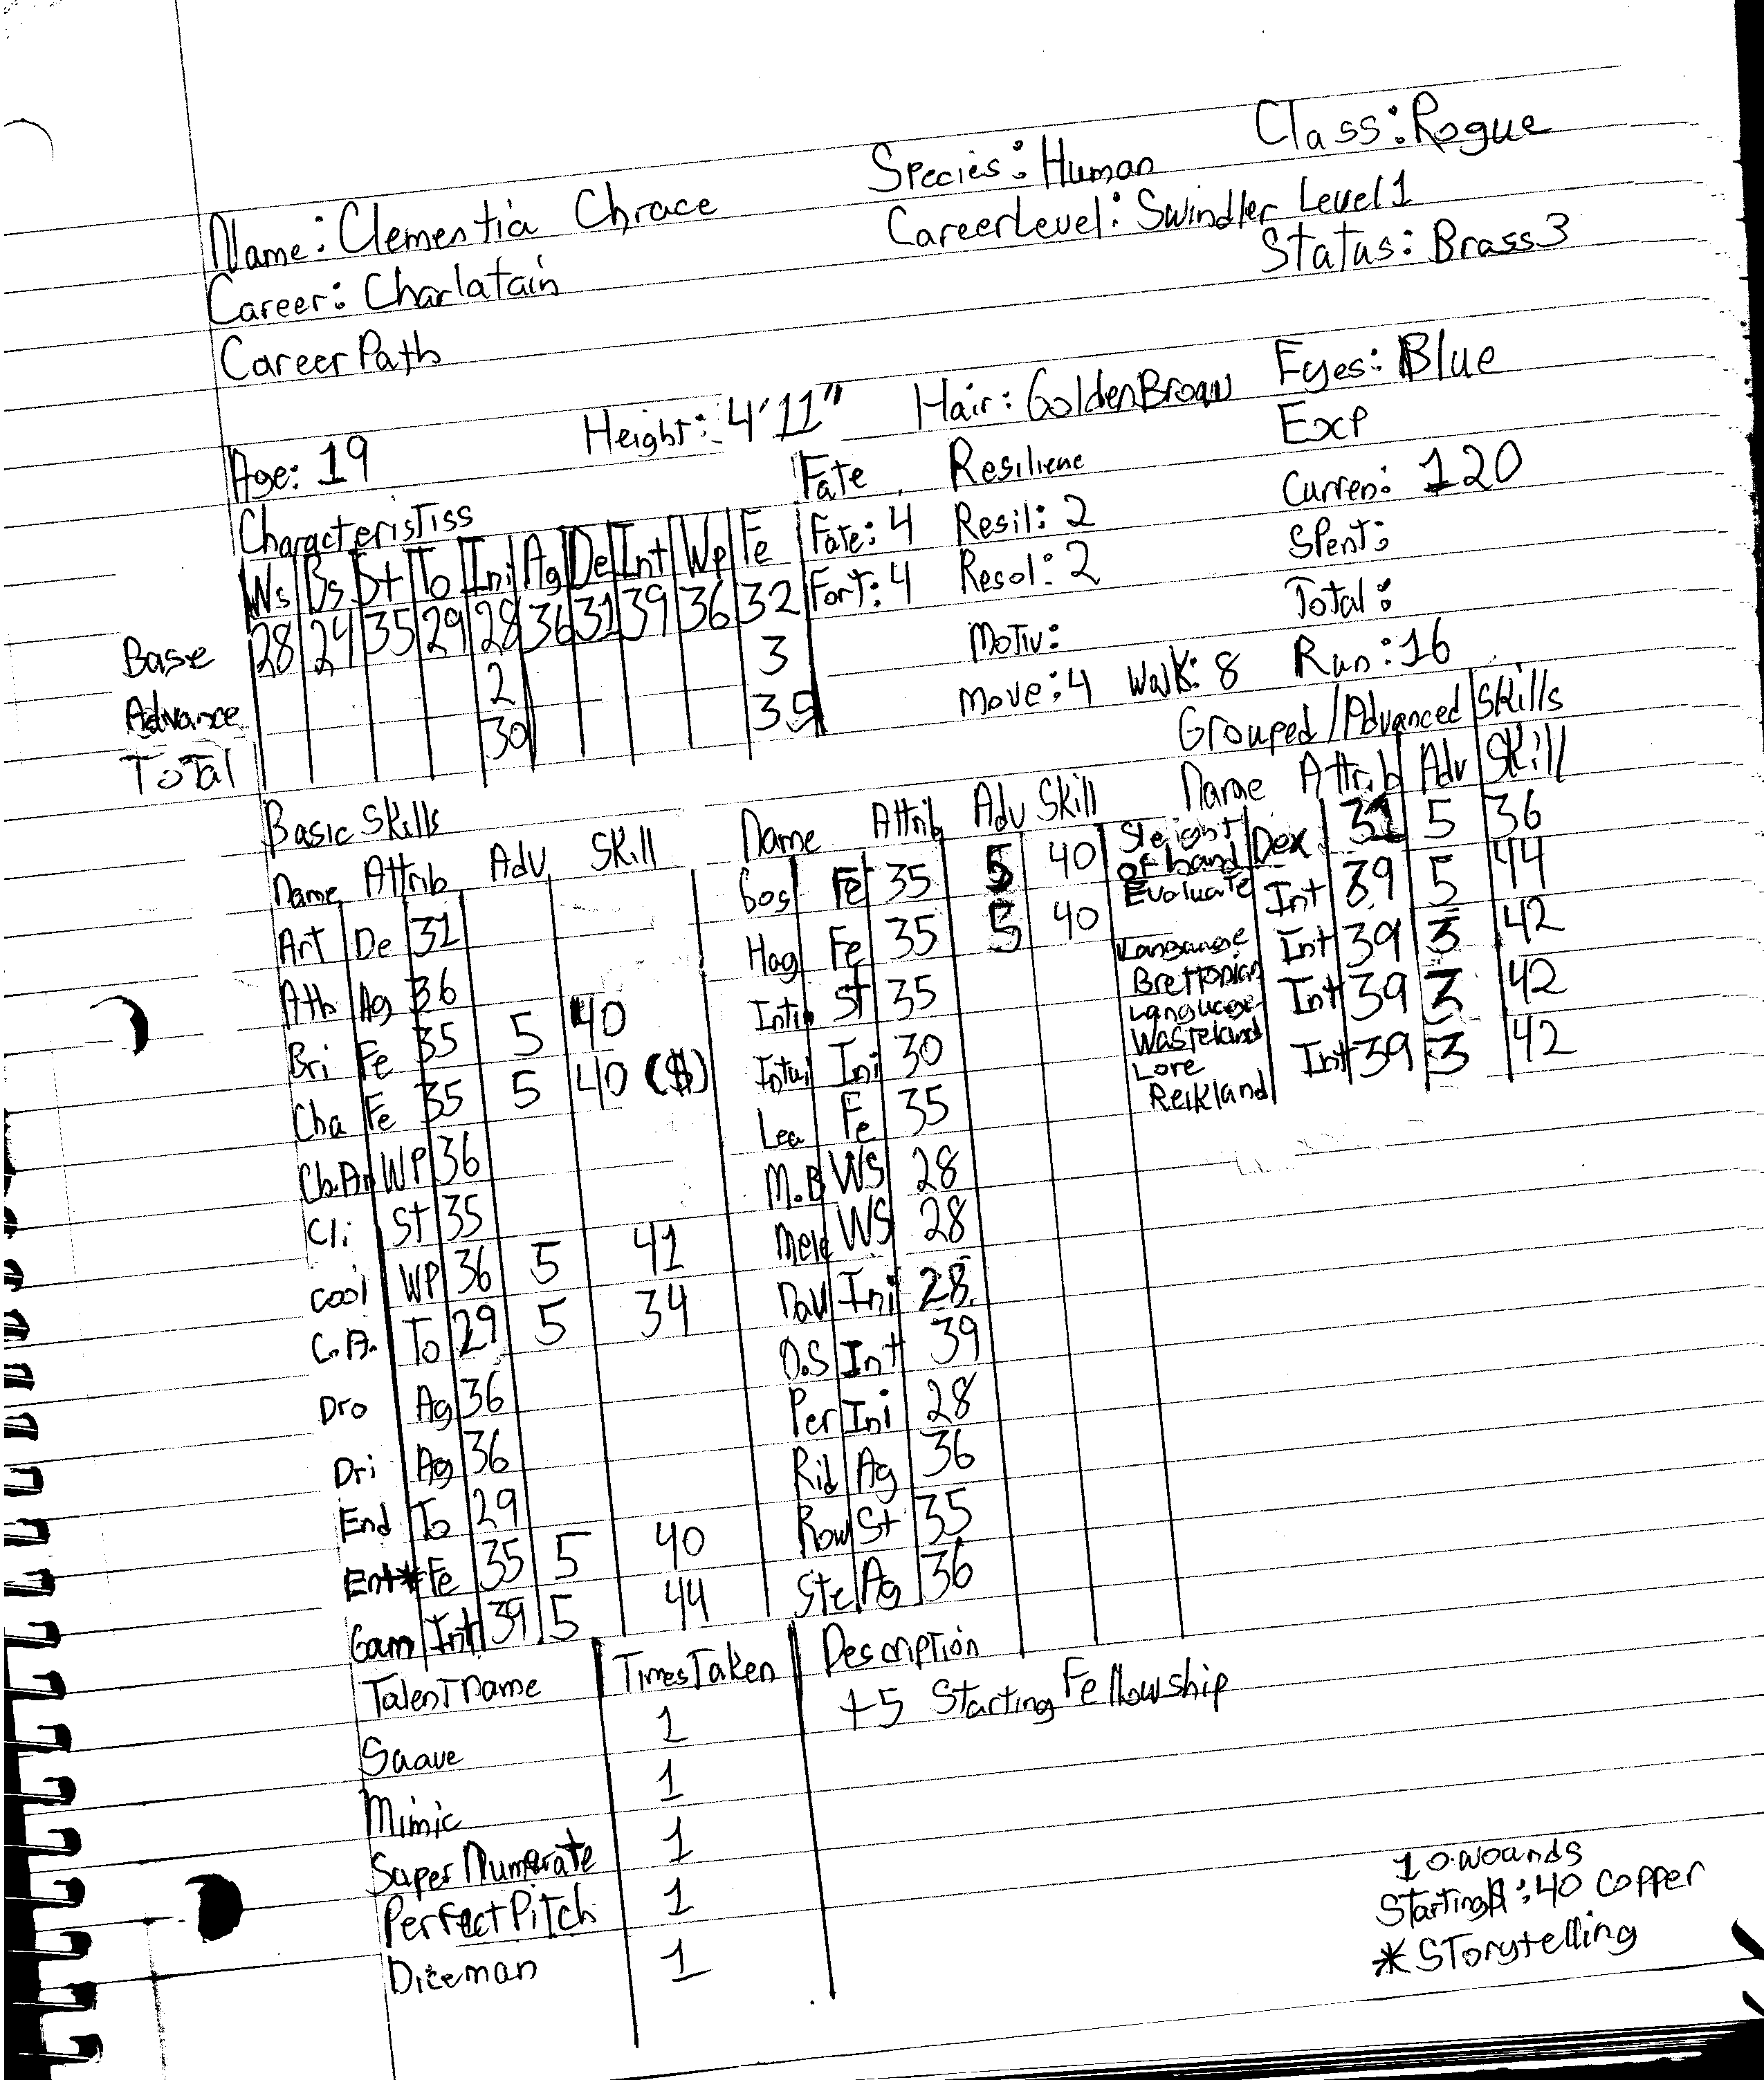 Class: Rogue
Species: Human
Name: Clementia Chrace
CareerLevel: Swindler Level 1
Career: Charlatain
Status: Brass 3
Career Path
Age: 19 Height: 4'11" Hair: Golden Brown Eyes: Blue
Fate Resiliene Excp
Characteristiss Fate: 4 Resil: 2 Curren: 120
Ws Bs St To Ini Ag De Int Wp Fe Fort: 4 Resol: 2 Spent:
Base 28 24 35 29 28 36 31 39 36 32 Motiv: Total:
Advance 2 3 Move: 4 Walk: 8 Run: 16
Total 30 35
Grouped/Advanced Skills
Basic Skills
Name Attrib Adv Skill Name Attrib Adv Skill Name Attrib Adv Skill
Art De 31 Gos Fe 35 5 40 Sleight of hand Dex 31 5 36
Ath Ag 36 Hag Fe 35 5 40 Evaluate Int 39 5 44
Bri Fe 35 5 40 Intim St 35 Language Brettonian Int 39 3 42
Cha Fe 35 5 40 ($) Intui Ini 30 Language Wasteland Int 39 3 42
Ch.An WP 36 Lea Fe 35 Lore Reikland Int 39 3 42
Cli St 35 M.B WS 28
Cool WP 36 5 41 Mele WS 28
C.A. To 29 5 34 Nav Ini 28
Dro Ag 36 O.S Int 39
Dri Ag 36 Per Ini 28
End To 29 Rid Ag 36
Ent* Fe 35 5 40 Row St 35
Gam Int 39 5 44 Ste Ag 36
Talent Name Times Taken Description
Suave 1 +5 Starting Fellowship
Mimic 1
Super Numerate 1
Perfect Pitch 1
Diceman 1
10 wounds
Starting $: 40 copper
* Storytelling